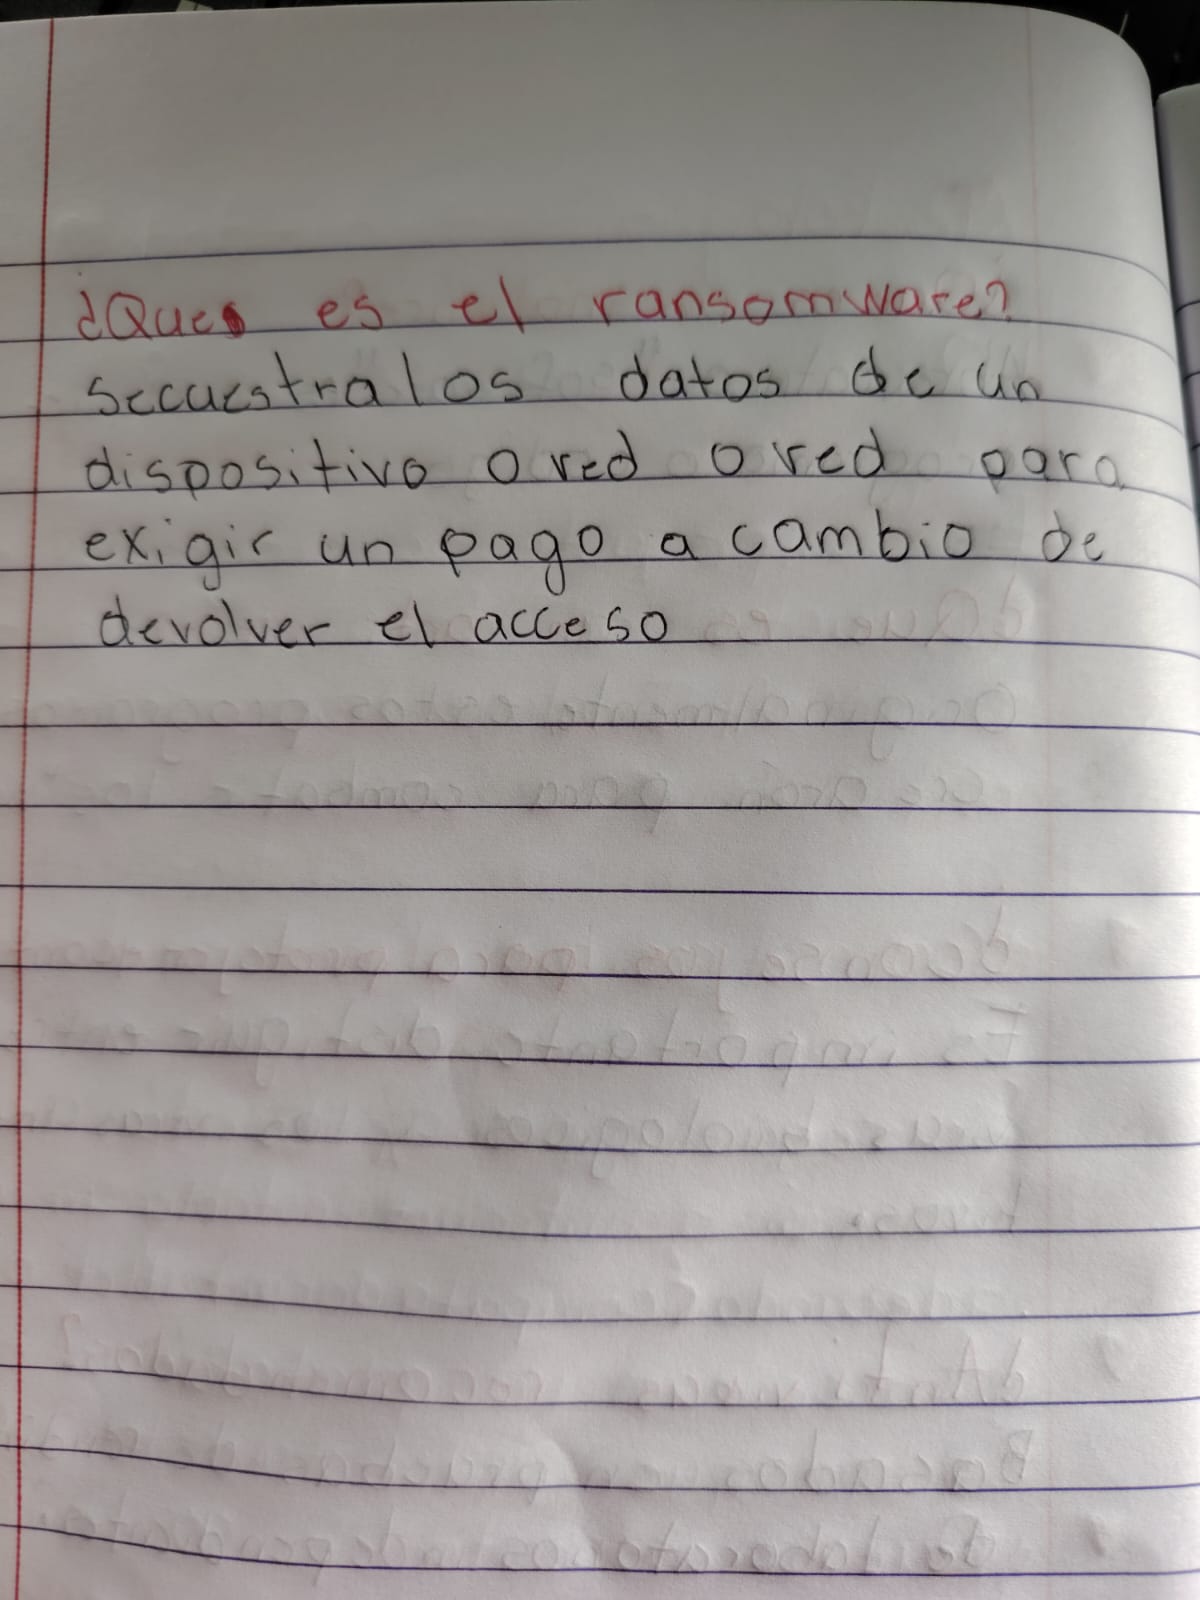 ¿Que es el ransomware?
secuestra los datos de un
dispositivo o red o red para
exigir un pago a cambio de
devolver el acceso